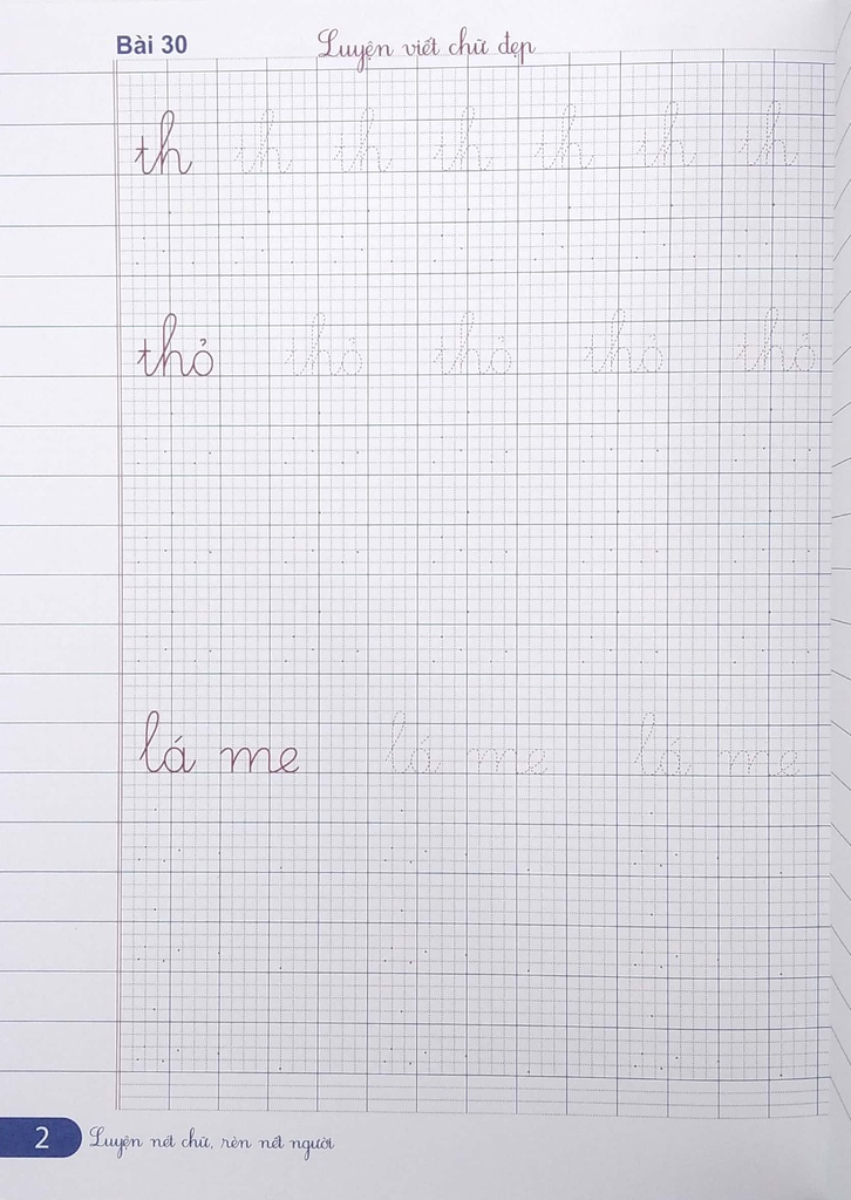 Bài 30 Luyện viết chữ đẹp
th th th th th th th
thỏ thỏ thỏ thỏ thỏ
lá me lá me lá me
2 Luyện nét chữ, rèn nết người